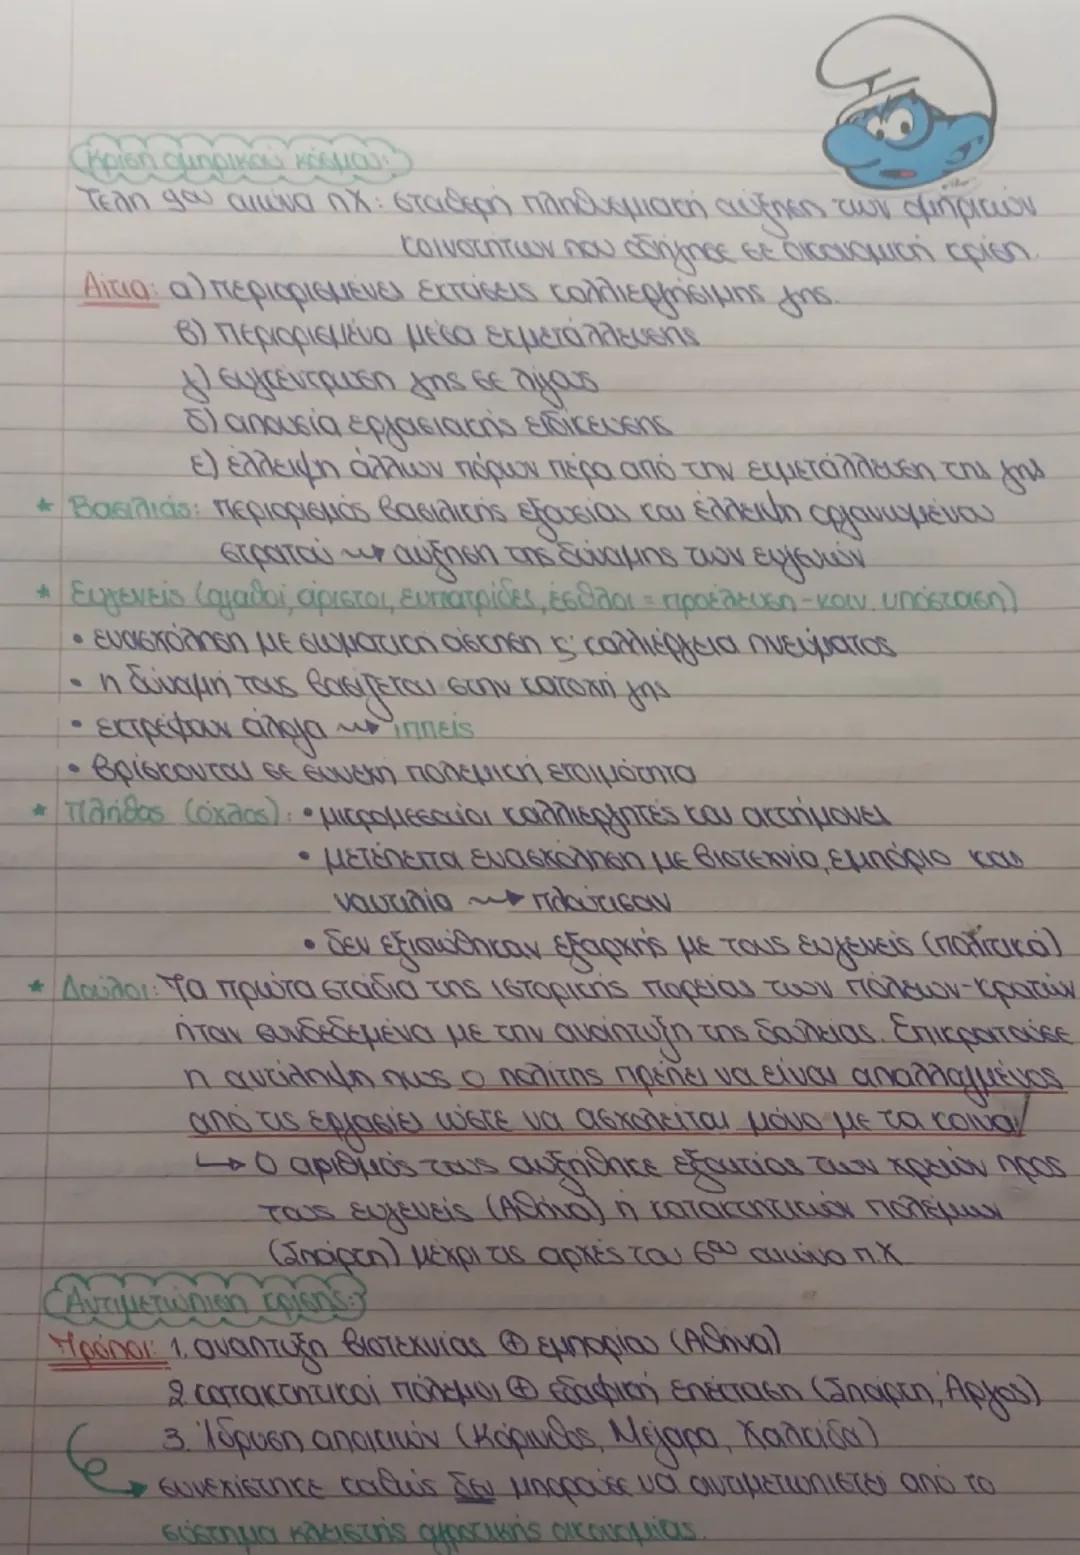 Κρίση ομηρικού κόσμου:
Τέλη 9ου αιώνα π.Χ: σταθερή πληθυσμιακή αύξηση των ομηρικών
κοινοτήτων που οδήγησε σε οικονομική κρίση.
Αίτια: α) περιορισμένες εκτάσεις καλλιεργήσιμης γης.
β) περιορισμένα μέσα εκμετάλλευσης
γ) συγκέντρωση γης σε λίγους
δ) απουσία εργασιακής ειδίκευσης
ε) έλλειψη άλλων πόρων πέρα από την εκμετάλλευση της γης
* Βασιλιάς: περιορισμός βασιλικής εξουσίας και έλλειψη οργανωμένου
στρατού → αύξηση της δύναμης των ευγενών
* Ευγενείς (αγαθοί, άριστοι, ευπατρίδες, εσθλοί = προέλευση - κοιν. υπόσταση)
• ενασχόληση με σωματική άσκηση ς' καλλιέργεια πνεύματος
• η δύναμή τους βασίζεται στην κατοχή γης
• εκτρέφουν άλογα → ιππείς
• βρίσκονται σε συνεχή πολεμική ετοιμότητα
* Πλήθος (όχλος): • μικρομεσαίοι καλλιεργητές και ακτήμονες
• μετέπειτα ενασχόληση με βιοτεχνία, εμπόριο και
ναυτιλία → πλούτισαν
• δεν εξισώθηκαν εξαρχής με τους ευγενείς (πολιτικά)
* Δούλοι: Τα πρώτα στάδια της ιστορικής πορείας των πόλεων-κρατών
ήταν συνδεδεμένα με την ανάπτυξη της δουλείας. Επικρατούσε
η αντίληψη πως ο πολίτης πρέπει να είναι απαλλαγμένος
από τις εργασίες ώστε να ασχολείται μόνο με τα κοινά/
↳ Ο αριθμός τους αυξήθηκε εξαιτίας των χρεών προς
τους ευγενείς (Αθήνα) ή κατακτητικών πολέμων
(Σπάρτη) μέχρι τις αρχές του 6ου αιώνα π.Χ
Αντιμετώπιση κρίσης:
Τρόποι: 1. ανάπτυξη βιοτεχνίας ⊕ εμπορίου (Αθήνα)
2. κατακτητικοί πόλεμοι ⊕ εδαφική επέκταση (Σπάρτη, Άργος)
3. Ίδρυση αποικιών (Κόρινθος, Μέγαρα, Χαλκίδα)
συνεχίστηκε καθώς δεν μπορούσε να αντιμετωπιστεί από το
σύστημα κλειστής αγροτικής οικονομίας.